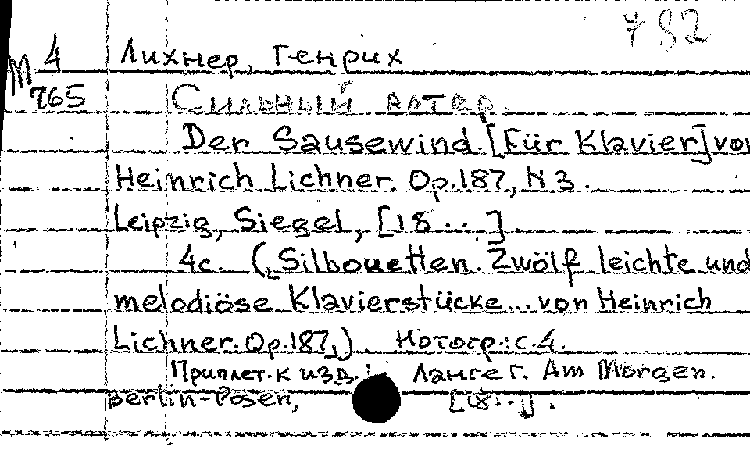 782
М 4 Лихнер, Генрих
765 Сильный ветер.
Der Sausewind. [Für Klavier] von
Heinrich Lichner. Op.187, N 3.
Leipzig, Siegel, [18..]
4с. („Silhouetten. Zwölf leichte und
melodiöse Klavierstücke... von Heinrich
Lichner. Op.187,). Нотогр.: с.4.
Приплет. к изд.: Ланге Г. Am Morgen.
Berlin-Posen, [18..].